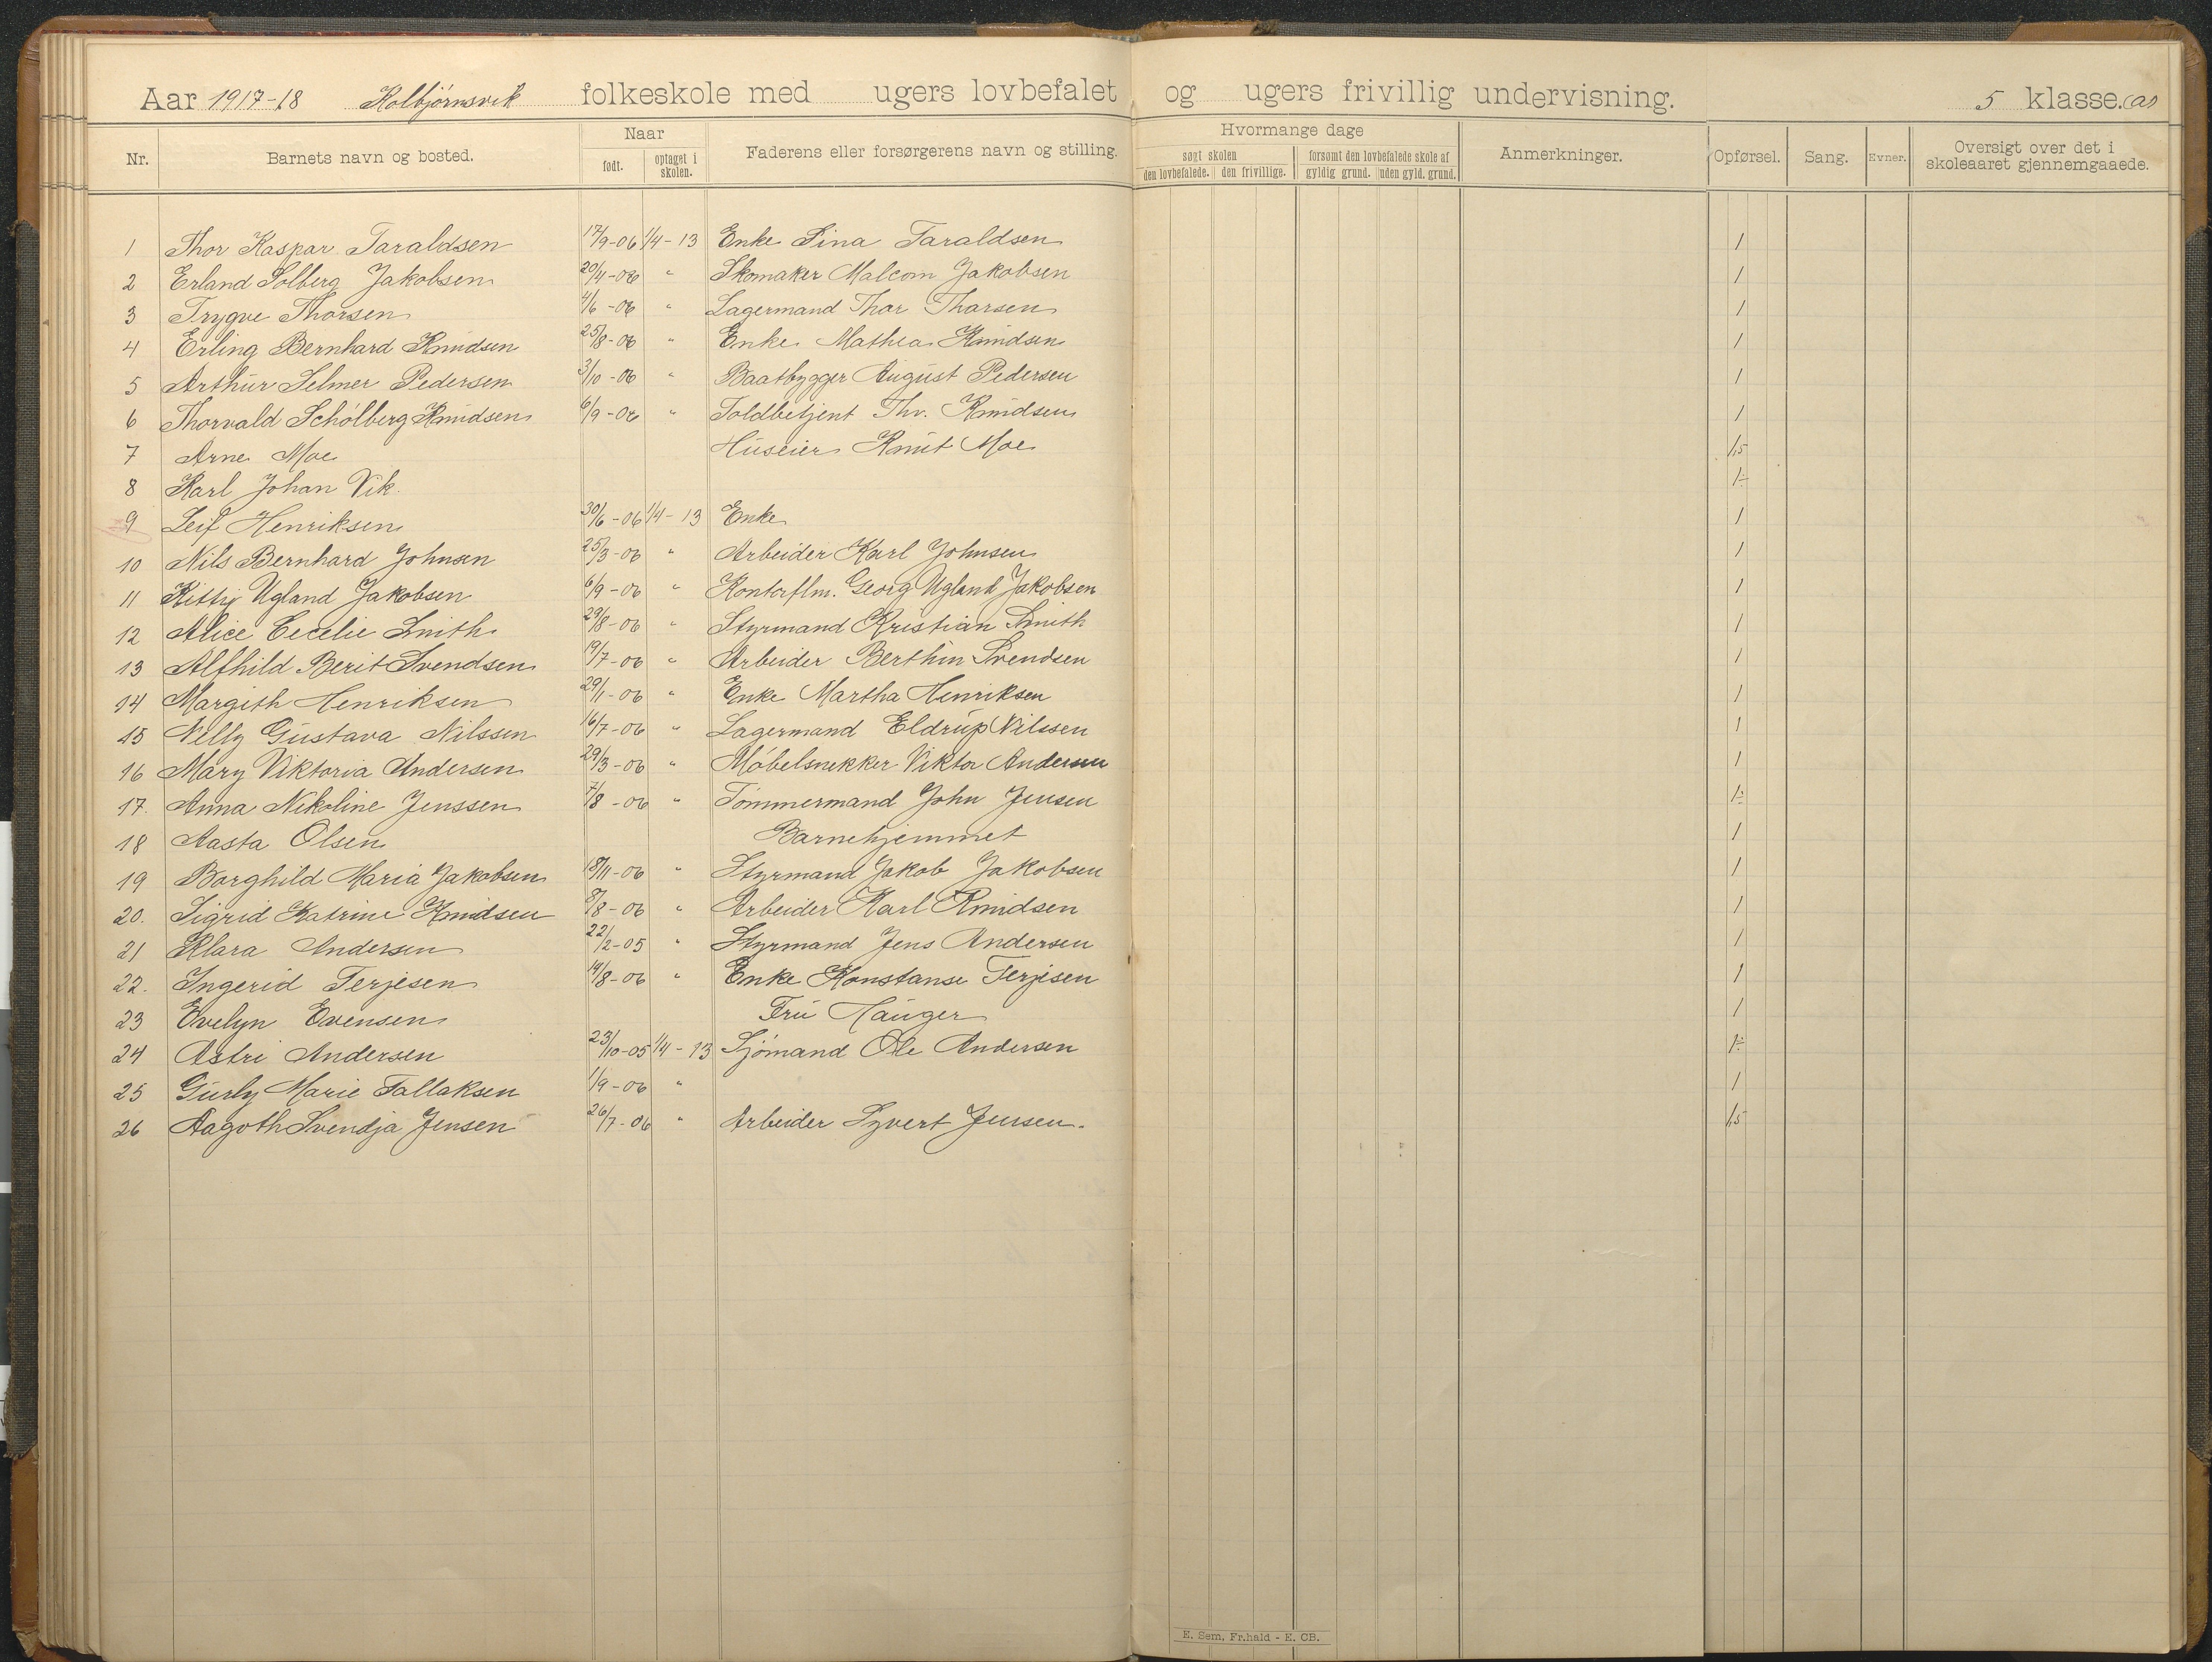 Aar 1917-18 Kolbjörnsvik folkeskole med ugers lovbefalet og ugers frivillig undervisning. 5 klasse.
Nr. Barnets navn og bosted. Naar født. optaget i skolen. Faderens eller forsørgerens navn og stilling. Hvormange dage søgt skolen den lovbefalede. den frivillige. forsømt den lovbefalede skole af gyldig grund. uden gyld. grund. Anmerkninger. Opførsel. Sang. Evner. Oversigt over det i skoleaaret gjennemgaaede.
1 Thor Kaspar Taraldsen 17/9-06 1/4-13 Enke Sina Taraldsen 1
2 Erland Solberg Jakobsen 20/4-06 " Skomaker Malcom Jakobsen 1
3 Trygve Thorsen 4/6-06 " Lagermand Thor Thorsen 1
4 Erling Bernhard Knudsen 25/8-06 " Enke Mathea Knudsen 1
5 Arthur Selmer Pedersen 3/10-06 " Baatbygger August Pedersen 1
6 Thorvald Schölberg Knudsen 6/9-06 " Toldbetjent Thv. Knudsen 1
7 Arne Moe Huseier Knut Moe 1,5
8 Karl Johan Vik. 1÷
9 Leif Henriksen 30/6-06 1/4-13 Enke 1
10 Nils Bernhard Johnsen 25/3-06 " Arbeider Karl Johnsen 1
11 Kitty Ugland Jakobsen 6/9-06 " Kontorflm. Georg Ugland Jakobsen 1
12 Alice Cecelie Smith 29/8-06 " Styrmand Kristian Smith 1
13 Alfhild Berit Svendsen 19/7-06 " Arbeider Berthin Svendsen 1
14 Margith Henriksen 29/1-06 " Enke Martha Henriksen 1
15 Nelly Gustava Nilssen 16/7-06 " Lagermand Eldrup Nilssen 1
16 Mary Viktoria Andersen 29/3-06 " Möbelsnekker Viktor Andersen 1
17. Anna Nikoline Jenssen 7/8-06 " Tömmermand John Jensen 1÷
18 Aasta Olsen Barnehjemmet 1
19 Borghild Maria Jakobsen 18/11-06 " Styrmand Jakob Jakobsen 1
20. Sigrid Katrine Knudsen 8/8-06 " Arbeider Karl Knudsen 1
21 Klara Andersen 22/2-05 " Styrmand Jens Andersen 1
22. Ingerid Terjesen 14/8-06 " Enke Konstanse Terjesen 1
23 Evelyn Evensen Fru Hauger 1
24 Astri Andersen 23/10-05 1/4-13 Sjömand Ole Andersen 1÷
25 Gurly Marie Tallaksen 1/9-06 " 1
26 Aagoth Svendja Jensen 26/7-06 " Arbeider Syvert Jensen. 1,5
E. Sem, Fr.hald - E. CB.